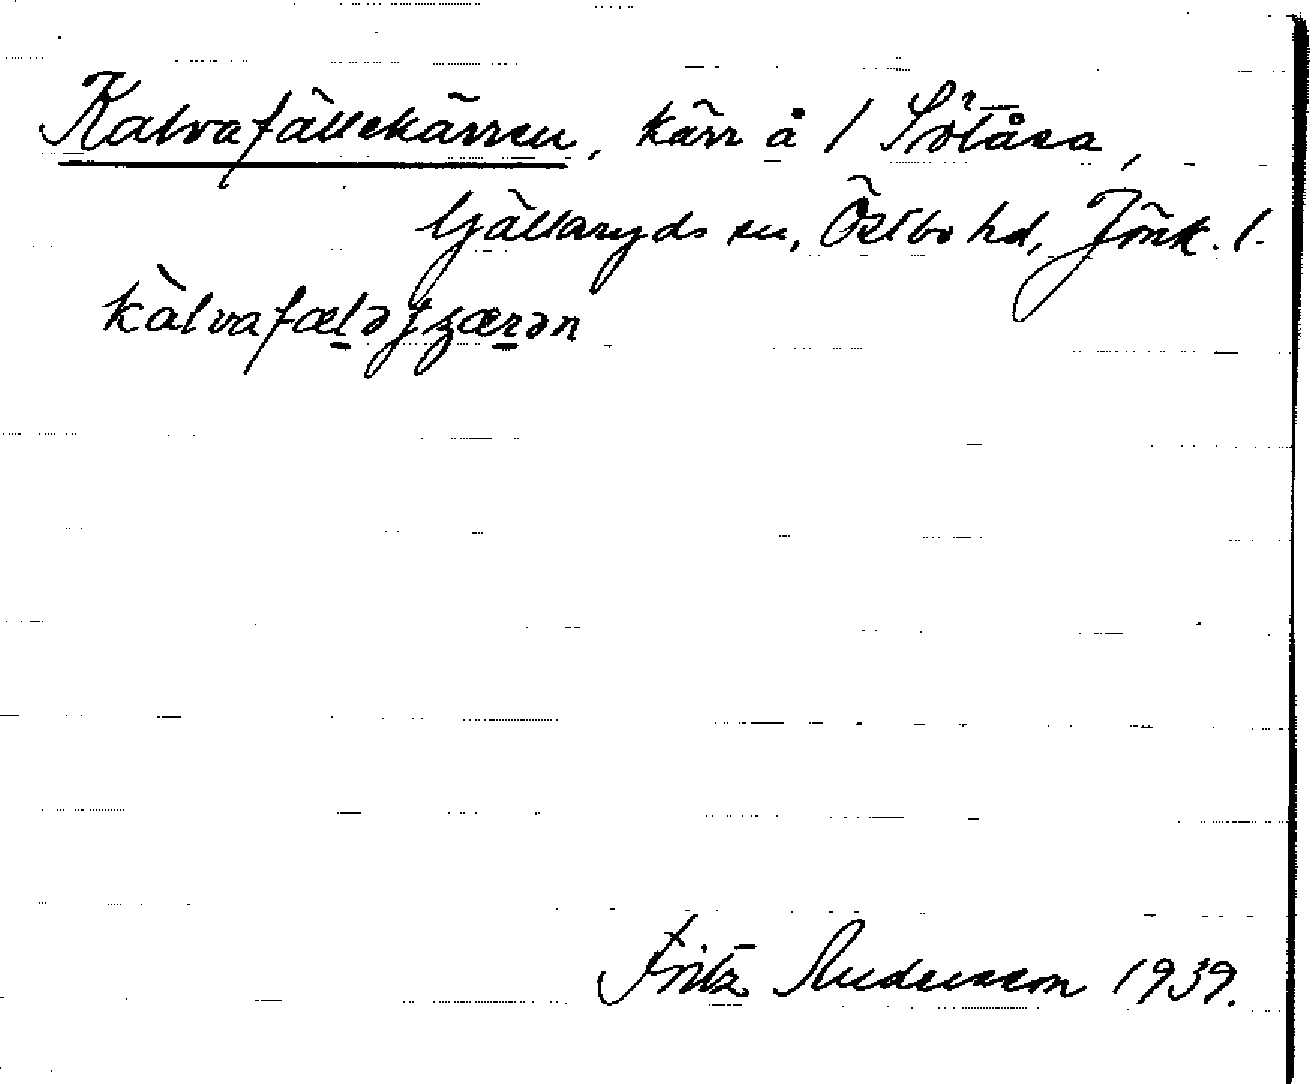 Kalvafällekärren, kärr å / Sötåsa,
Gällaryds sn, Östbo hd, Jönk. l.
kàlvafæləʄʒærən
Fritz Andersson 1939.